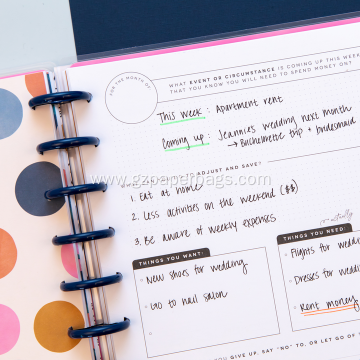 FOR THE MONTH OF
WHAT EVENT OR CIRCUMSTANCE IS COMING UP THIS WEEK
THAT YOU KNOW YOU WILL NEED TO SPEND MONEY ON?
This week : Apartment rent
Coming up : Jeannies wedding next month
→ Bachelorette trip + bridesmaid
ADJUST AND SAVE?
www.gzpaperbags.com
1. Eat at home
2. Less activities on the weekend ($$)
3. Be aware of weekly expenses
THINGS YOU WANT:
- New shoes for wedding
- Go to nail salon
THINGS YOU NEED:
Flights for wedding
Dresses for wedding
Rent money
YOU GIVE UP, SAY "NO" TO, OR LET GO OF